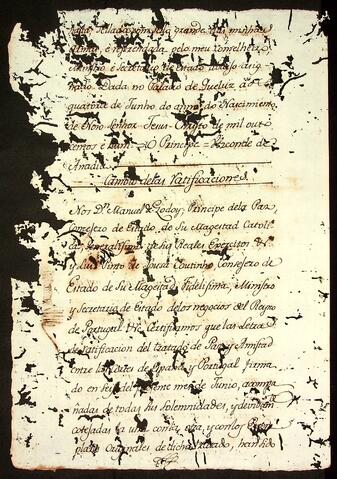 sellada com selo grande das minhas
Armas, e referendada pelo meu Conselheiro
Ministro e Secretario de Estado abaixo assig
nado. Dada no Palacio de Queluz aos
quatorze de Junho do anno do Nascimento
de Noso Senhor Jesus Christo de mil outo
centos e hum = O Principe = Visconde de
Anadia
Cambio de las Ratificaciones
Nos Dn. Manuel de Godoy, Principe de la Paz,
Consejero de Estado, de Su Magestad Catoli
ca, Generalisimo de sus Reales Exercitos &a
y Luis Pinto de Sousa Coutinho, Consejero de
Estado de Su Magestad Fidelisima, Ministro
y Secretario de Estado de los negocios del Reyno
de Portugal &a Certificamos que las Letras
de ratificacion del tratado de Paz y Amistad
entre las Cortes de España y Portugal firma
do en seis del presente mes de Junio, acompa
ñadas de todas sus solemnidades, y
cotejadas la una con la otra, y con los Exem
plares Originales de dicho tratado, han sido